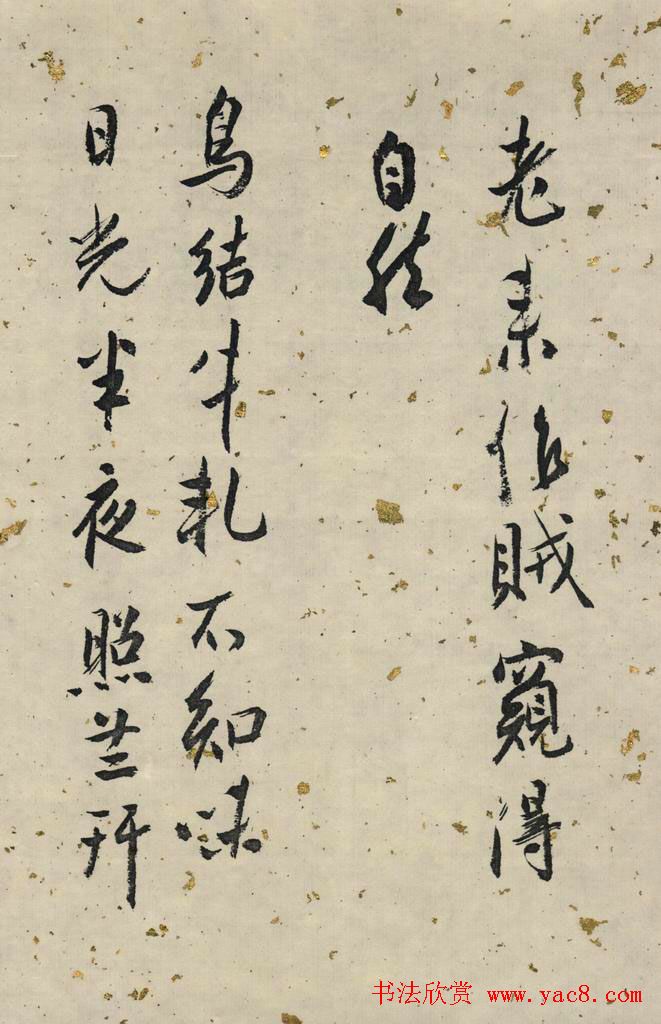 老来作賊窺得
自然
鳥結牛不知味
日光半夜照玕
书法欣赏 www.yac8.com